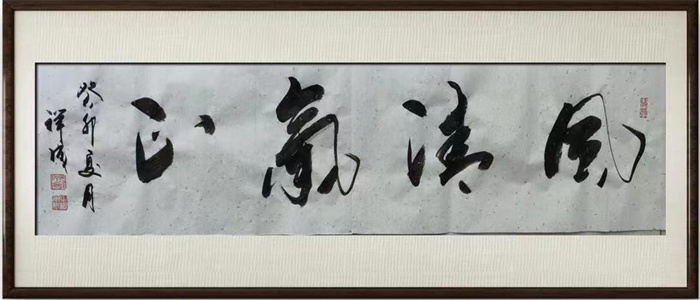 風清氣正
癸卯夏月
祥成